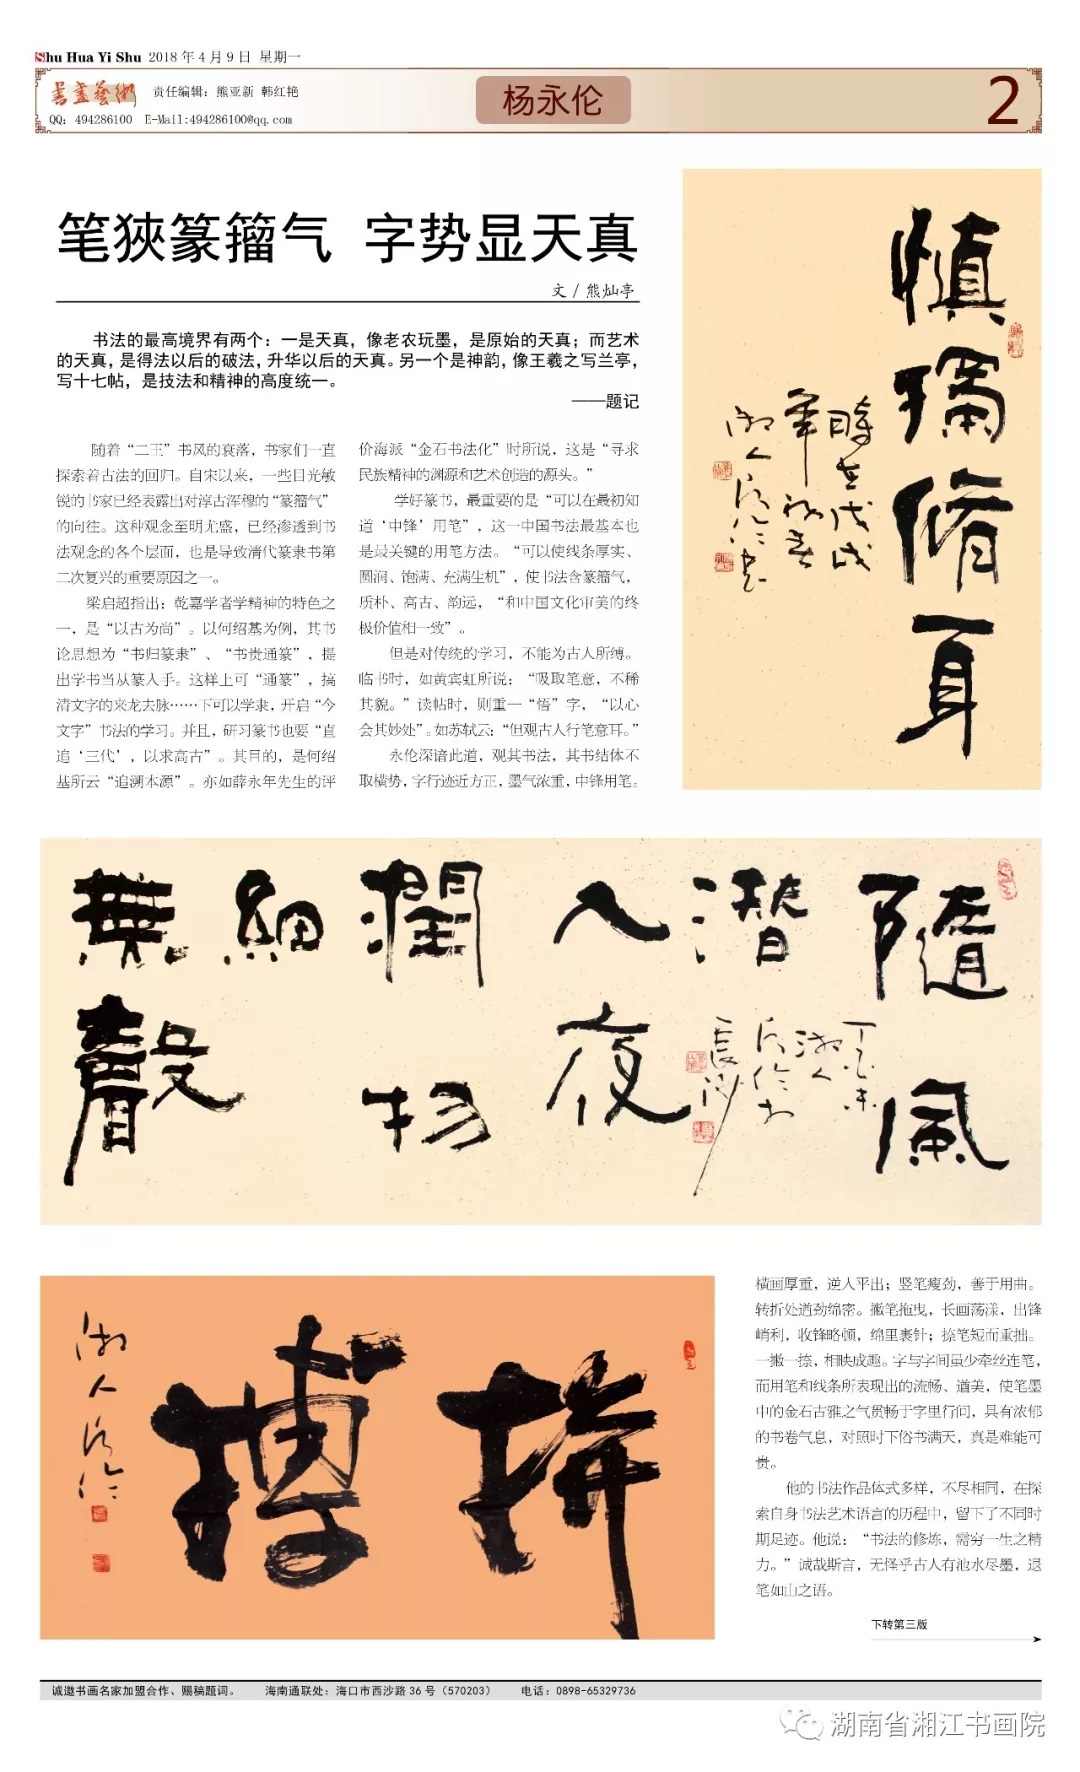 Shu Hua Yi Shu 2018年4月9日 星期一
書畫藝術
责任编辑：熊亚新 韩红艳
QQ: 494286100 E-Mail:494286100@qq.com
杨永伦
2
笔狹篆籀气 字势显天真
文/熊灿亭
书法的最高境界有两个：一是天真，像老农玩墨，是原始的天真；而艺术
的天真，是得法以后的破法，升华以后的天真。另一个是神韵，像王羲之写兰亭，
写十七帖，是技法和精神的高度统一。
——题记
随着“二王”书风的衰落，书家们一直
探索着古法的回归。自宋以来，一些目光敏
锐的书家已经表露出对淳古浑穆的“篆籀气”
的向往。这种观念至明尤盛，已经渗透到书
法观念的各个层面，也是导致清代篆隶书第
二次复兴的重要原因之一。
梁启超指出：乾嘉学者学精神的特色之
一，是“以古为尚”。以何绍基为例，其书
论思想为“书归篆隶”、“书贵通篆”，提
出学书当从篆入手。这样上可“通篆”，搞
清文字的来龙去脉……下可以学隶，开启“今
文字”书法的学习。并且，研习篆书也要“直
追‘三代’，以求高古”。其目的，是何绍
基所云“追溯本源”。亦如薛永年先生的评
价海派“金石书法化”时所说，这是“寻求
民族精神的渊源和艺术创造的源头。”
学好篆书，最重要的是“可以在最初知
道‘中锋’用笔”，这一中国书法最基本也
是最关键的用笔方法。“可以使线条厚实、
圆润、饱满、充满生机”，使书法含篆籀气，
质朴、高古、韵远，“和中国文化审美的终
极价值相一致”。
但是对传统的学习，不能为古人所缚。
临书时，如黄宾虹所说：“吸取笔意，不稀
其貌。”读帖时，则重一“悟”字，“以心
会其妙处”。如苏轼云：“但观古人行笔意耳。”
永伦深谙此道，观其书法，其书结体不
取横势，字行迹近方正，墨气浓重，中锋用笔。
慎獨脩身
時在戊戌
年初春
湘人永伦书
隨風
潛
入夜
潤物
細
無聲
丁酉末
湘人
永伦书
長沙
拼搏
湘人永伦
横画厚重，逆入平出；竖笔瘦劲，善于用曲。
转折处遒劲绵密。撇笔拖曳，长画荡漾，出锋
峭利，收锋略顿，绵里裹针；捺笔短而重拙。
一撇一捺，相映成趣。字与字间虽少牵丝连笔，
而用笔和线条所表现出的流畅、遒美，使笔墨
中的金石古雅之气贯畅于字里行间，具有浓郁
的书卷气息，对照时下俗书满天，真是难能可
贵。
他的书法作品体式多样，不尽相同，在探
索自身书法艺术语言的历程中，留下了不同时
期足迹。他说：“书法的修炼，需穷一生之精
力。”诚哉斯言，无怪乎古人有池水尽墨，退
笔如山之语。
下转第三版
诚邀书画名家加盟合作、赐稿题词。 海南通联处：海口市西沙路36号（570203） 电话：0898-65329736
湖南省湘江书画院